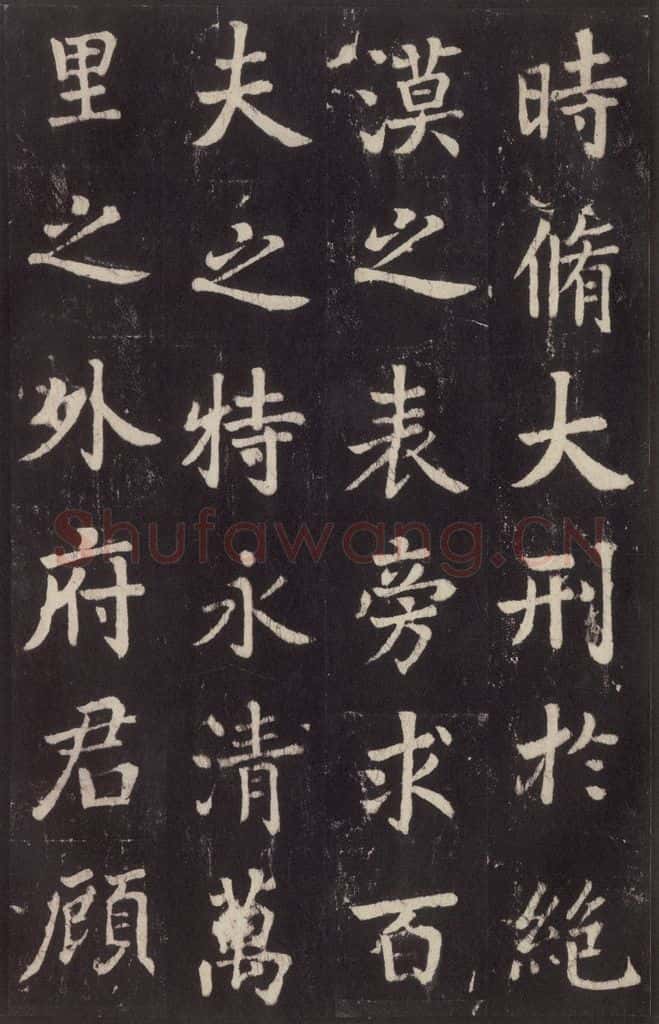 時脩大刑於絶
漠之表旁求百
夫之特永清萬
里之外府君顧
Shufawang.CN